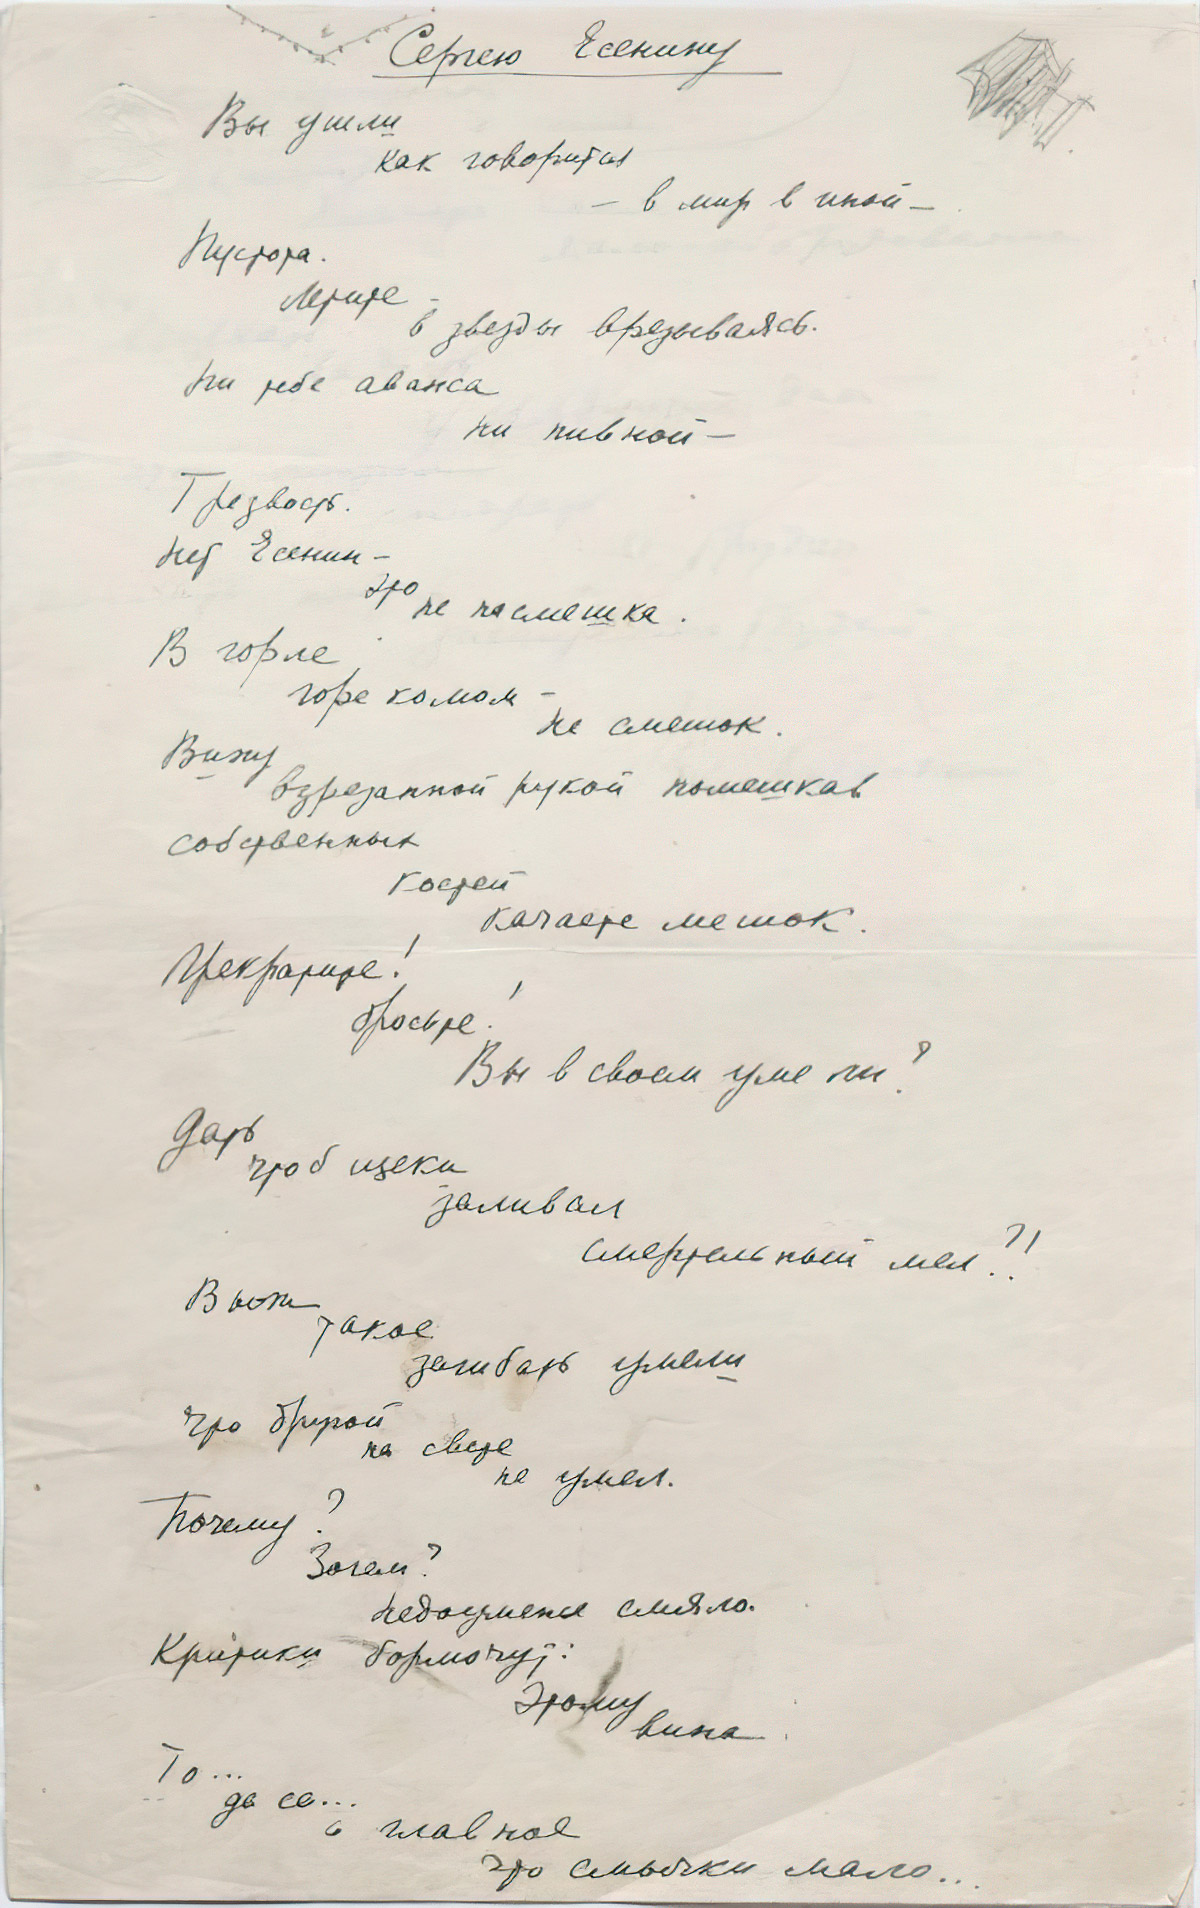 Сергею Есенину
Вы ушли
как говорится
— в мир в иной —
Пустота.
Летите
в звезды врезываясь.
Ни тебе аванса
ни пивной —
Трезвость.
Нет Есенин —
это
не насмешка.
В горле
горе комом —
не смешок.
Вижу
взрезанной рукой помешкав
собственных
костей
качаете мешок.
Прекратите!
бросьте!
Вы в своем уме ли?
Дать
чтоб щеки
заливал
смертельный мел?!
Вы ж
такое
загибать умели
что другой
на свете
не умел.
Почему?
Зачем?
Недоуменье смяло.
Критики бормочут:
Этому
вина
То...
да се...
а главное
что смычки мало...